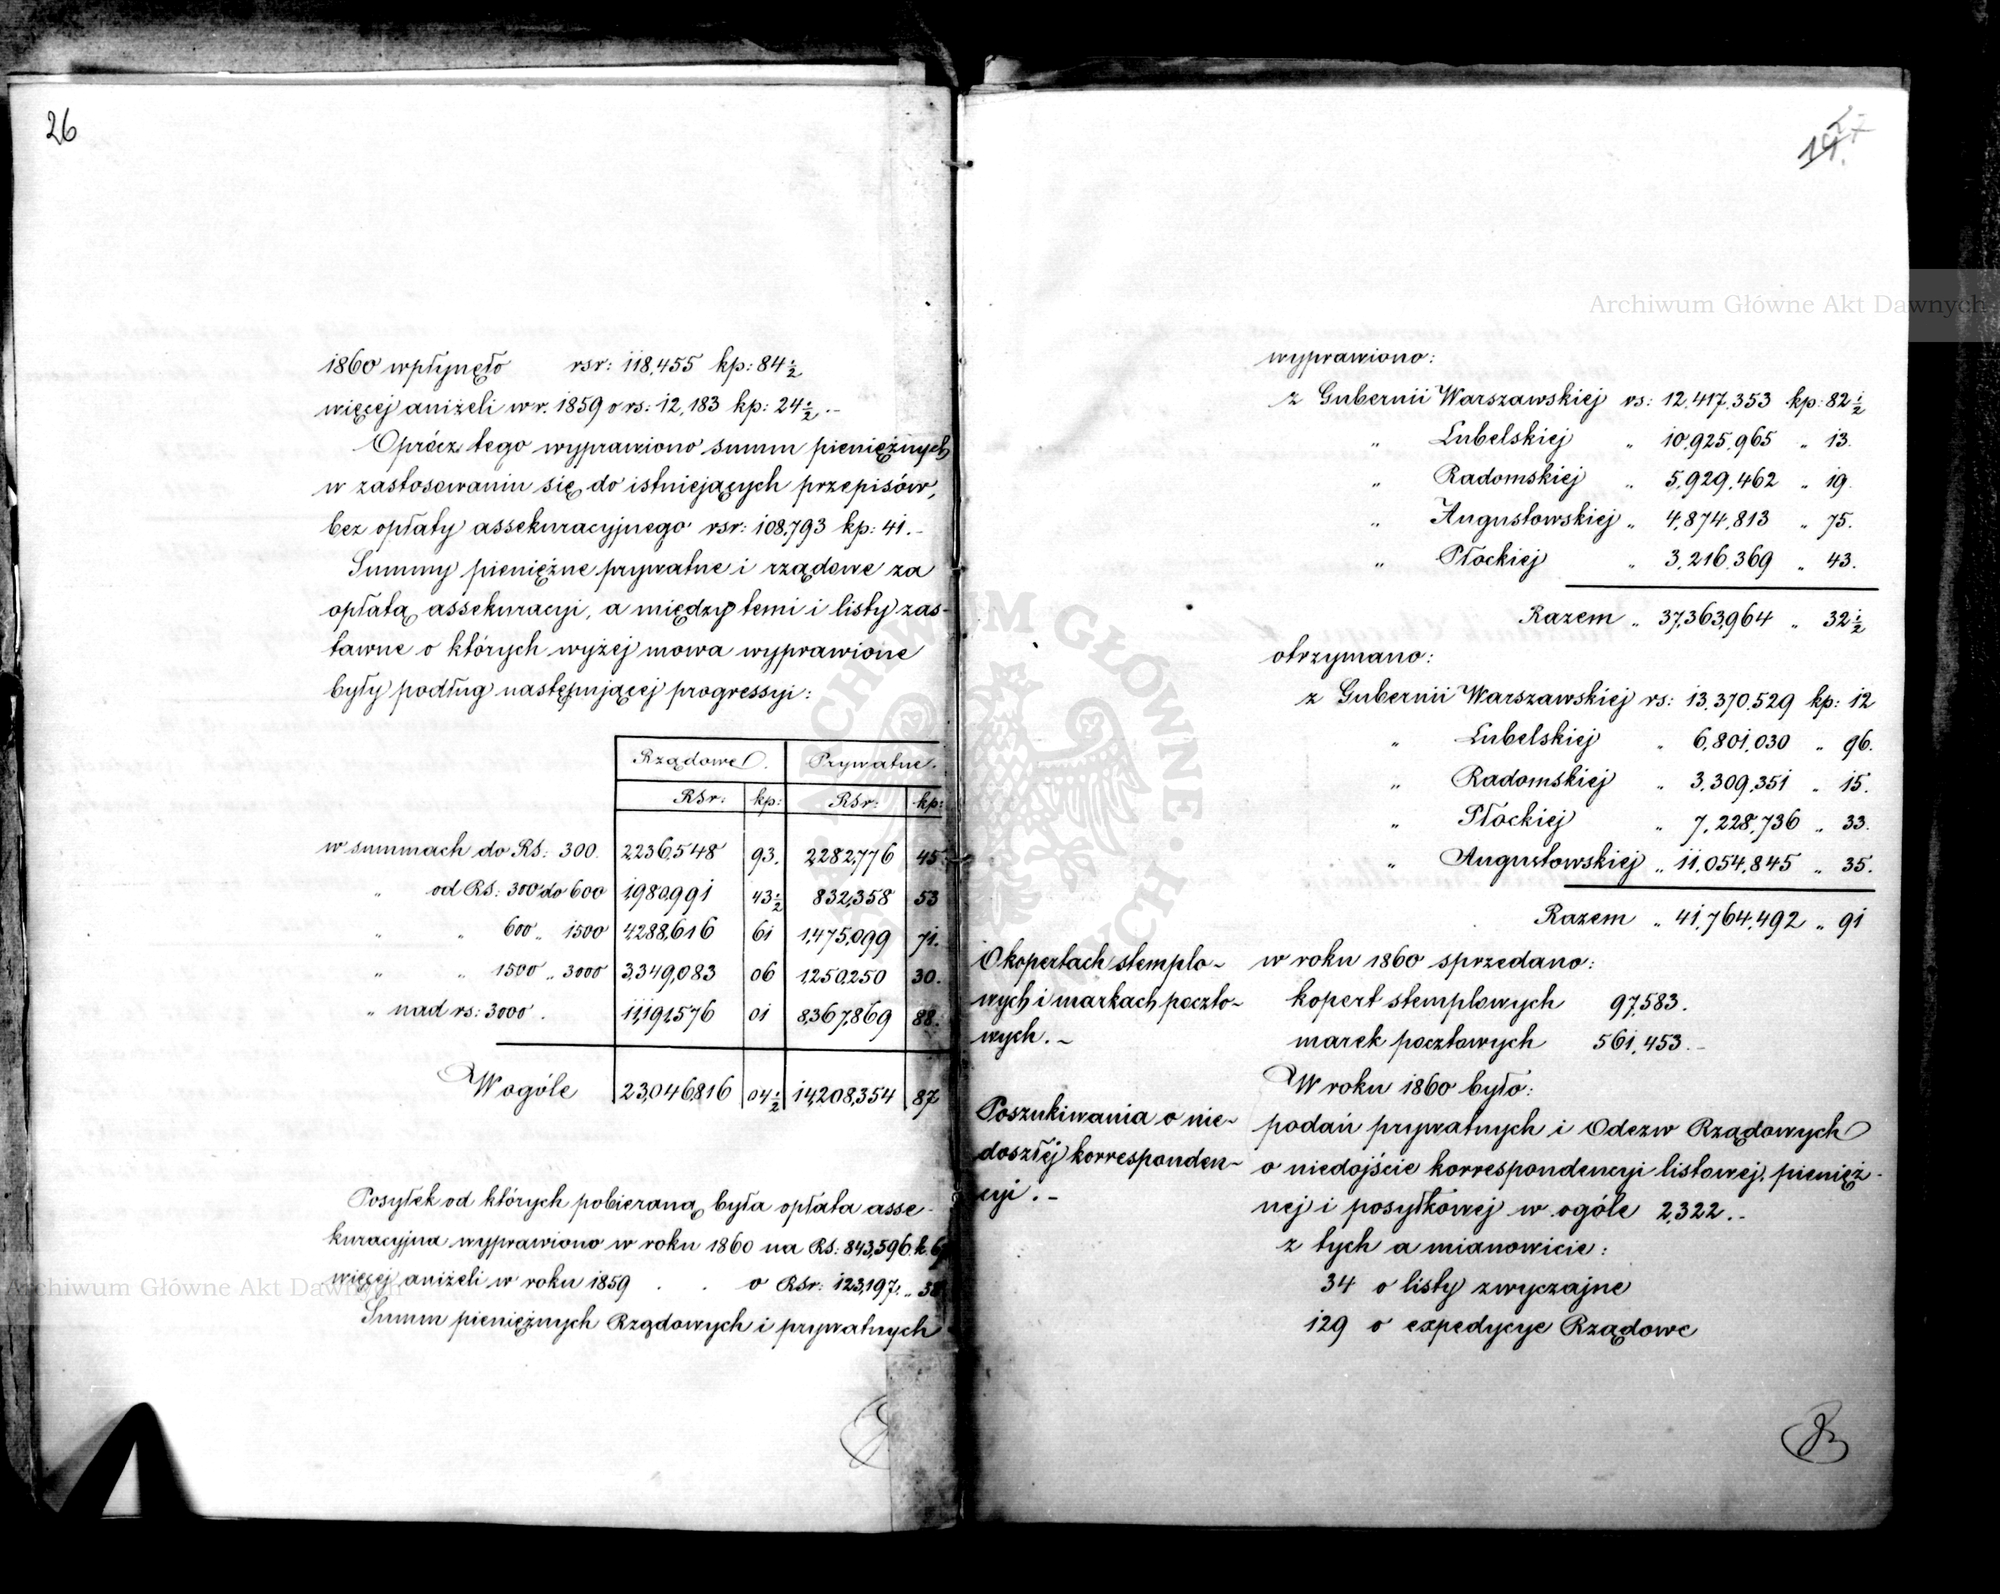 26
1860 wpłynęło rsr: 118,455 kp: 84 1/2
więcej aniżeli w r. 1859 o rs: 12,183 kp: 24 1/2.-
Oprócz tego wyprawiono summ pieniężnych
w zastosowaniu się do istniejących przepisów,
bez opłaty assekuracyjnego rsr: 108,793 kp: 41.-
Summy pieniężne prywatne i rządowe za
opłatą assekuracyi, a między temi i listy zas-
tawne o których wyżej mowa wyprawione
były podług następującej progressyi:
Rządowe. Prywatne.
RSr: kp: RSr: kp:
w summach do RS: 300. 2,236,548 93. 2,282,776 45.
" od RS: 300 do 600 1,980,991 43 1/2 832,358 53
" " 600 " 1500 4,288,616 61 1,475,099 71.
" " 1500 " 3000 3,349,083 06 1,250,250 30.
" nad rs: 3000. 11,191,576 01 8,367,869 88.
W ogóle 23,046,816 04 1/2 14,208,354 87
Posyłek od których pobieraną była opłata asse-
kuracyjna wyprawiono w roku 1860 na RS: 843,596 k.
więcej aniżeli w roku 1859 . . o RSr: 123,197: "
Summ pieniężnych Rządowych i prywatnych
wyprawiono:
z Gubernii Warszawskiej rs: 12,417,353 kp: 82 1/2
" Lubelskiej " 10,925,965 " 13.
" Radomskiej " 5,929,462 " 19.
" Augustowskiej " 4,874,813 " 75.
" Płockiej " 3,216,369 " 43.
Razem " 37,363,964 " 32 1/2
otrzymano:
z Gubernii Warszawskiej rs: 13,370,529 kp: 12
" Lubelskiej " 6,801,030 " 96.
" Radomskiej " 3,309,351 " 15.
" Płockiej " 7,228,736 " 33.
" Augustowskiej " 11,054,845 " 35.
Razem " 41,764,492 " 91
O kopertach stemplo-
wych i markach poczto-
wych.-
w roku 1860 sprzedano:
kopert stemplowych 97,583.
marek pocztowych 561,453.-
Poszukiwania o nie-
doszłej korresponden-
cyi.-
W roku 1860 było:
podań prywatnych i Odezw Rządowych
o niedojście korrespondencyi listowej, pienięż-
nej i posyłkowej w ogóle 2,322.-
z tych a mianowicie:
34 o listy zwyczajne
129 o expedycye Rządowe
Archiwum Główne Akt Dawnych
Archiwum Główne Akt Dawnych
ARCHIWUM GŁÓWNE AKT DAWNYCH